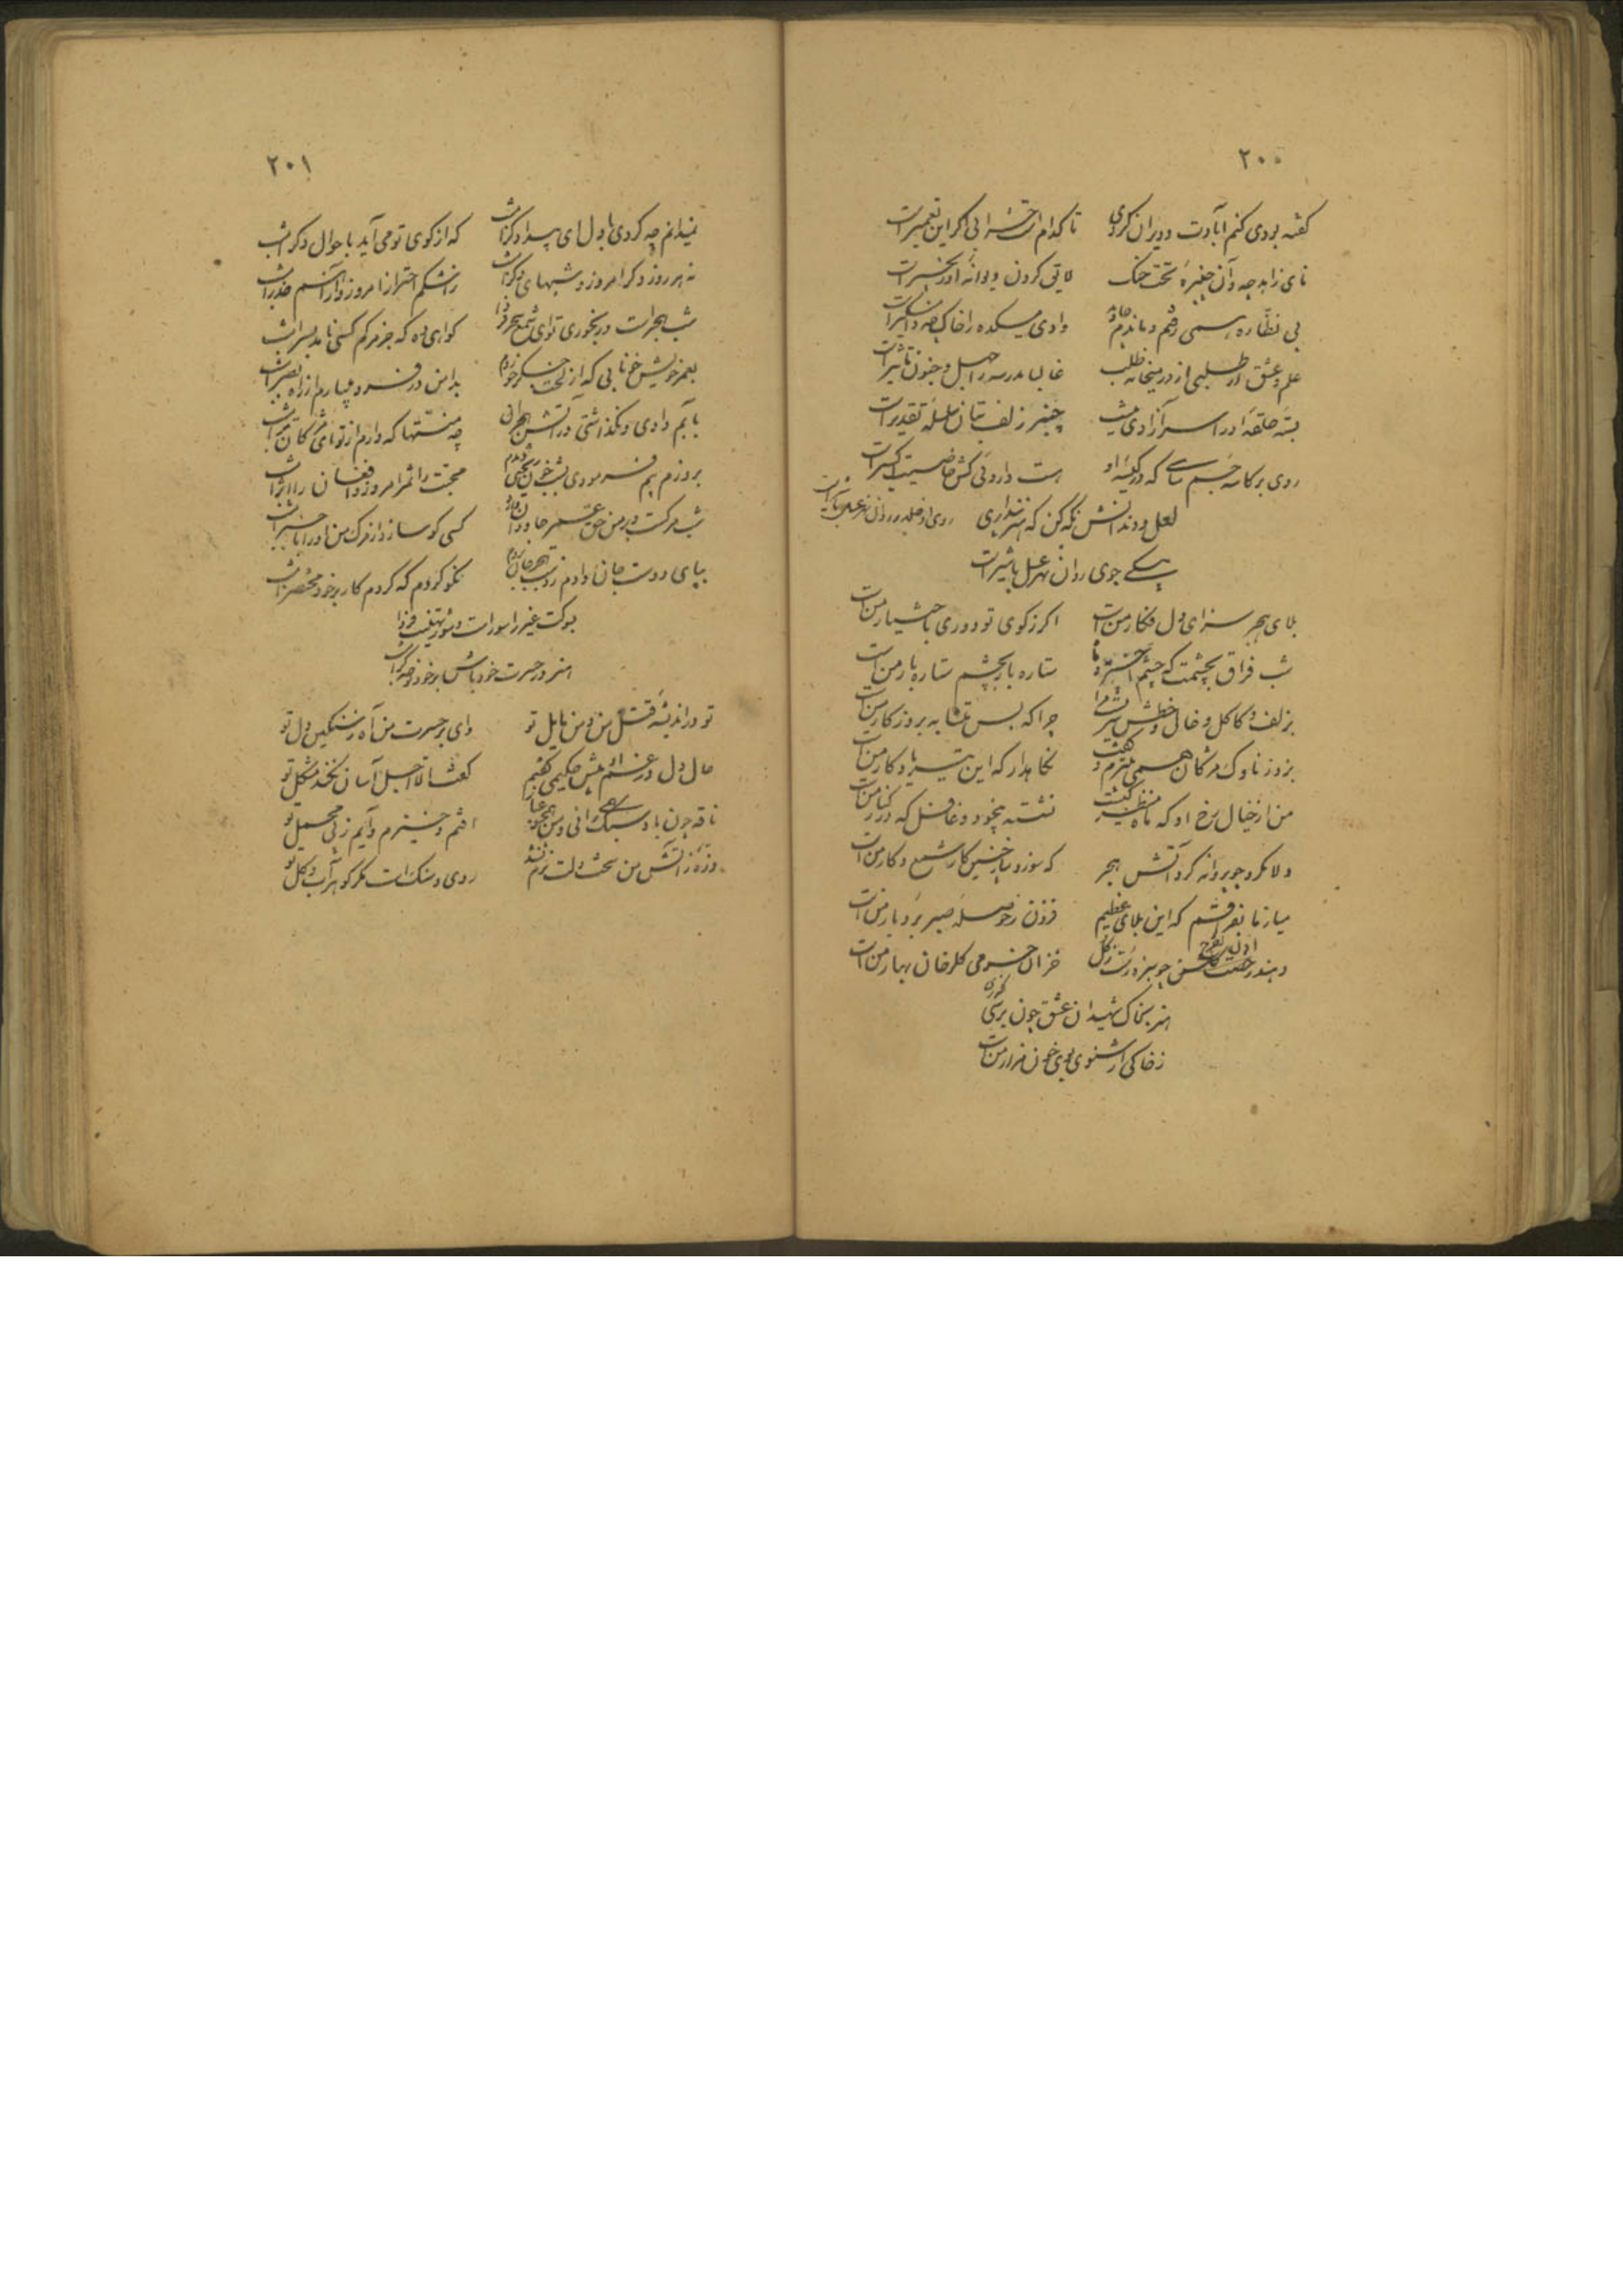 ٢٠٠
گفته بودی کنم آبادت و ویران کردی تا کدام است خرابی اگر این تعمیرست
نای زاهد چه و آن چنبرهٔ تحت حنک لایق گردن دیوانهٔ او زنجیرست
بی نظاره رسمی رفتم و ماندم وادی میکده را خاک چه دامنگیرست
علم عشق ار طلبی از در میخانه طلب غالبا مدرسه را جهل و جنون تأثیرست
بستهٔ حلقهٔ او را سر آزادی نیست چنبر زلف بتان سلسلهٔ تقدیرست
روی بر کاسه چشم که در گیسهٔ او هست داروئی کش خاصیت اکسیرست
لعل و دندانش نگه کن که هنر پنداری
یکی جوی روان نهر عسل با شیرست
بلای هجر سزای دل فکار منست اگر ز کوی تو دوری باختیار منست
شب فراق بچشمت که چشم اختر ستاره بار بچشم ستاره بار منست
بزلف و کاکل و خال و خطش چرا که بس متشابه بروزگار منست
بزد ز ناوک مژگان همی گفت نگاهدار که این تیر یادگار منست
من از خیال رخ او که ماه نشسته بیخود و غافل که در کنار منست
دلا مگرد چو پروانه گرد آتش هجر که سوز و ساختن کار شمع و کار منست
میازما بفراقم که این بلای عظیم فزون ز حوصلهٔ صبر بردبار منست
خزان خرمی گلرخان بهار منست
هنر بخاک شهیدان عشق چون گذری
ز خاکی ار شنوی بوی خون مزار منست
٢٠١
نمیدانم چه کردی با دل ای بیدادگر امشب که از کوی تو می آید باحوال دگر امشب
نه هر روز دگر امروز و شبهای دگر امشب ز اشکم احتراز امروز و از آهم حذر امشب
شب هجرست و رنجوری تو ای شمع سحر گواهی ده که جز مرگم کسی نامد بسر امشب
بعمر خویش خونابی که از لخت جگر خوردم بدامن در فرو میبارم از راه بصر امشب
بآبم دادی و نگذاشتی در آتش هجران چه منتها که دارم از تو ای مژگان تر امشب
بروزم بیم فرمودی بشب خون ریختی محبت را ثمر امروز و افغان را اثر امشب
شب مرگست و بر من حق عمر جاودان کسی کو سازد از مرگ من او را با خبر امشب
بپای دوست جان دادم نکو کردم که کردم کار بر خود مختصر امشب
بسوکت غیر را سورست
هنر در حسرت خود باش بر خود نوحه گر امشب
تو در اندیشهٔ قتل من و من مایل تو وای بر حسرت من آه ز سنگین دل تو
حال دل در غم او پیش حکیمی گفتم گفت الا اجل آسان نکند مشکل تو
ناقه چون باد سبک رانی و من افتم و خیزم و آیم ز پی محمل تو
ذرهٔ ز آتش من سخت دلت روی و سنگ است مگر گوهر آب و گل تو